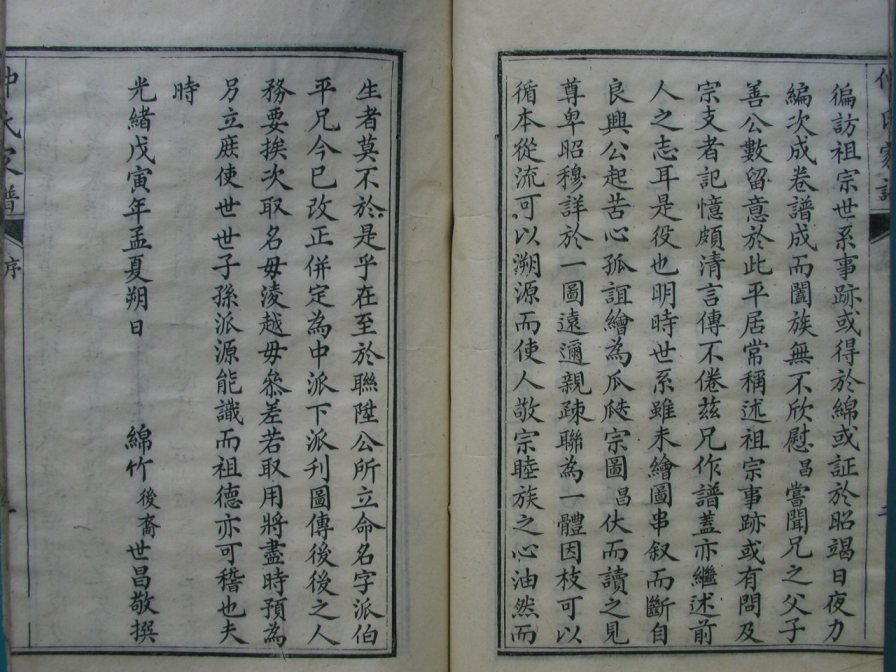 徧訪祖宗世系事跡或得於綿或証於昭竭日夜力
編次成卷譜成而闔族無不欣慰昌嘗聞兄之父子
善公數留意於此平居常稱述祖宗事跡或有問及
宗支者記憶頗清言傳不倦茲兄作譜蓋亦繼述前
人之志耳是役也明時世系雖未繪圖串叙而斷自
良興公起苦心孤誼繪為瓜瓞宗圖昌伏而讀之見
尊卑昭穆詳於一圖遠邇親疎聯為一體因枝可以
循本從流可以溯源而使人敬宗睦族之心油然而
生者莫不於是乎在至於聯陞公所立命名字派伯
平兄今已改正併定為中派下派刊圖傳後後之人
務要挨次取名毋淩越毋叅差若取用將盡時預為
另立庶使世世子孫派源能識而祖德亦可稽也夫
時
光緒戊寅年孟夏朔日 綿竹後裔世昌敬撰
氏家譜
序